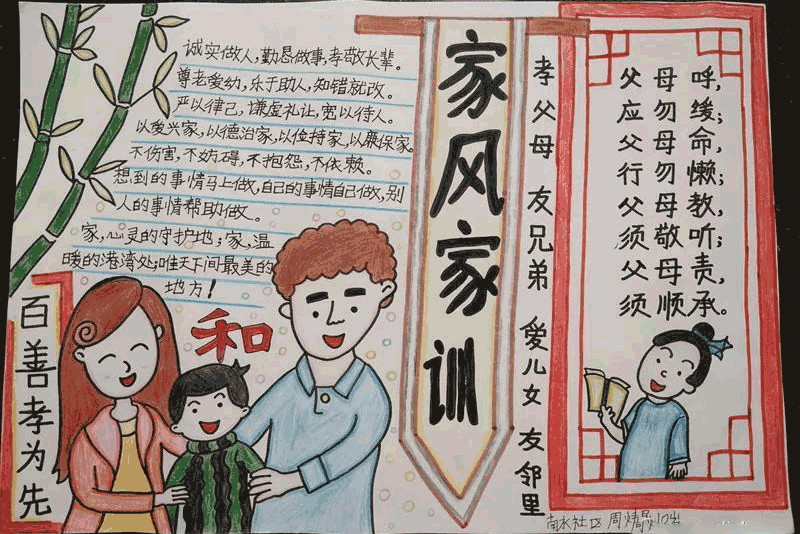 诚实做人,勤恳做事,孝敬长辈。
尊老爱幼,乐于助人,知错就改。
严以律己,谦虚礼让,宽以待人。
以爱兴家,以德治家,以俭持家,以廉保家。
不伤害,不妨碍,不抱怨,不依赖。
想到的事情马上做,自己的事情自己做,别
人的事情帮助做。
家,心灵的守护地;家,温
暖的港湾处;唯天下间最美的
地方!
和
百善孝为先
家风家训
孝父母 友兄弟 爱儿女 友邻里
父母呼,
应勿缓;
父母命,
行勿懒;
父母教,
须敬听;
父母责,
须顺承。
南水社区 周 10岁